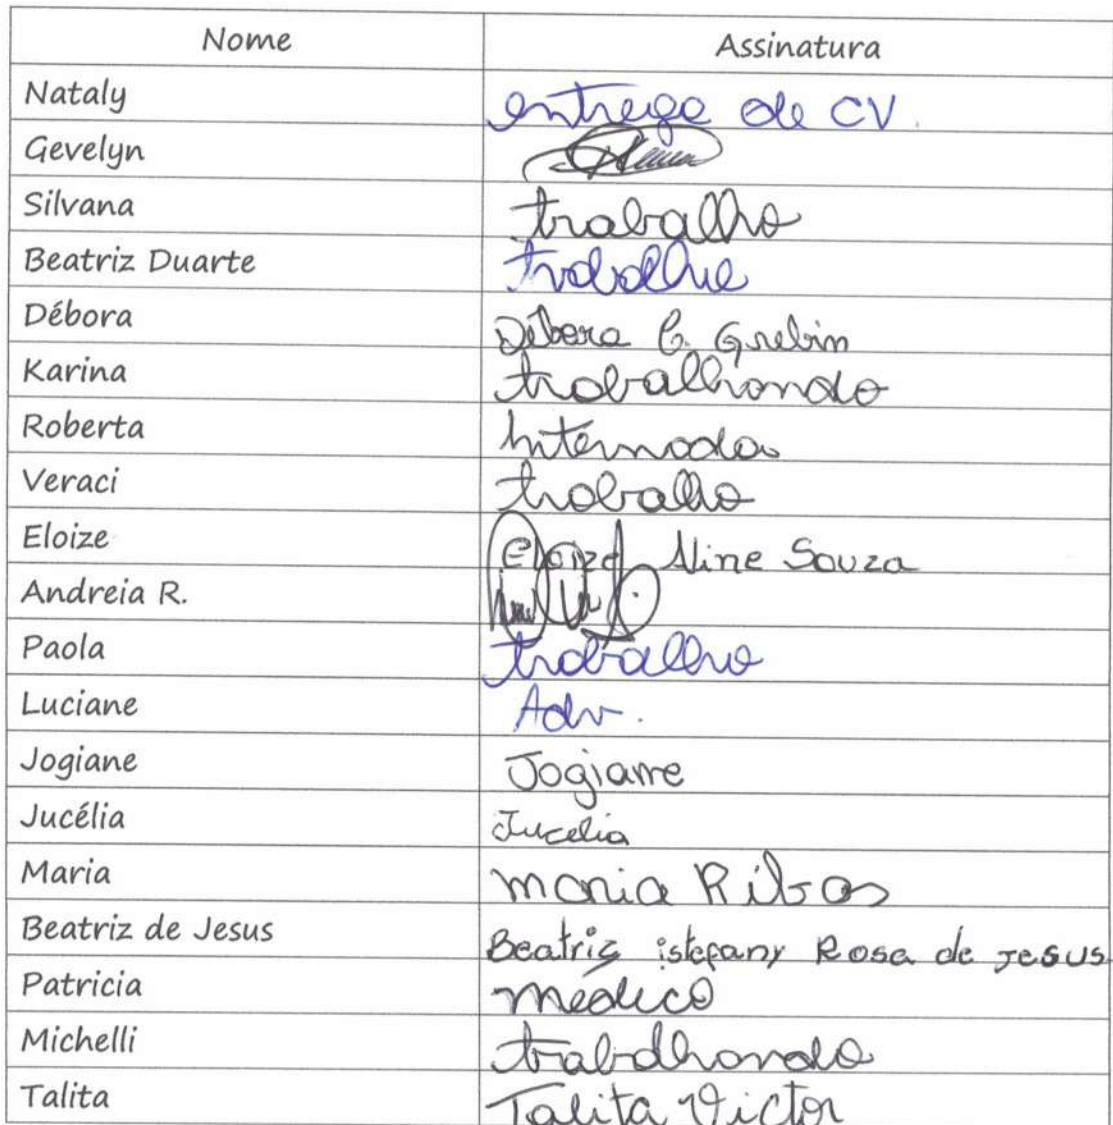 Nome Assinatura
Nataly entrega de CV.
Gevelyn
Silvana trabalho
Beatriz Duarte trabalho
Débora Débora C. Grebin
Karina trabalhando
Roberta Internada
Veraci trabalho
Eloize Eloize Aline Souza
Andreia R.
Paola trabalho
Luciane Adv.
Jogiane Jogiane
Jucélia Jucelia
Maria Maria Ribas
Beatriz de Jesus Beatriz istefany Rosa de Jesus
Patricia médico
Michelli trabalhando
Talita Talita Victor